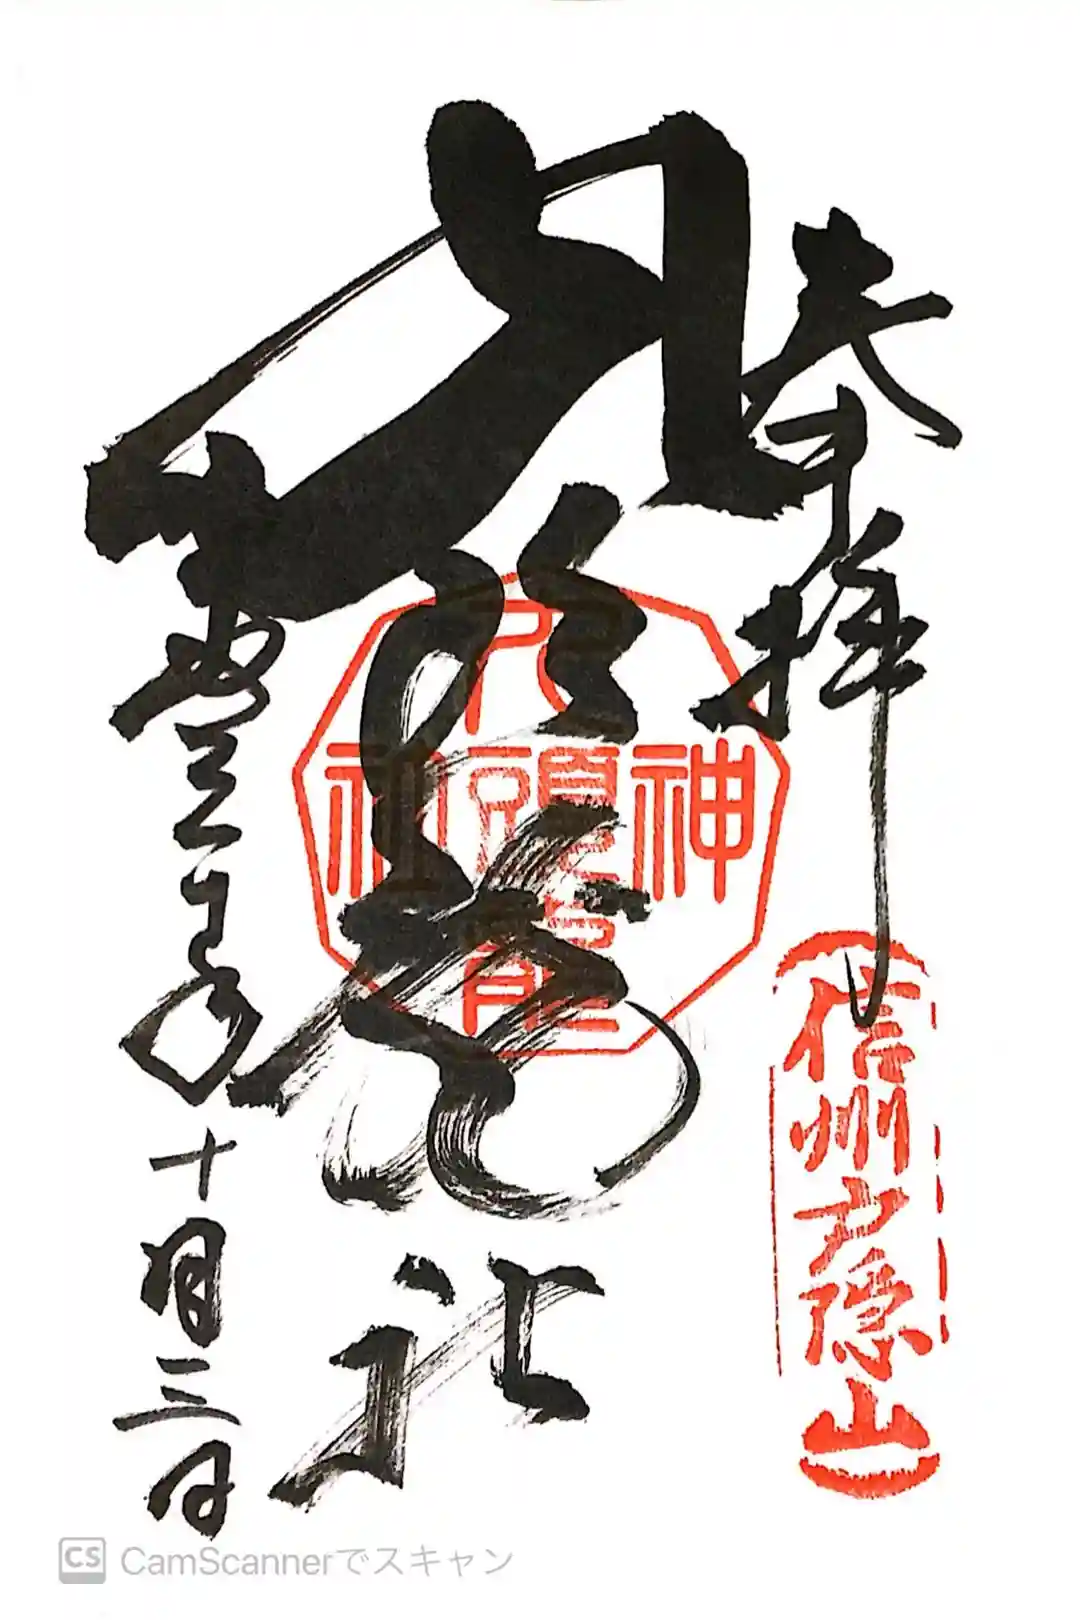 奉拝
信州戸隠山
九頭龍社
神
九頭龍
年十月三日
CS CamScannerでスキャン